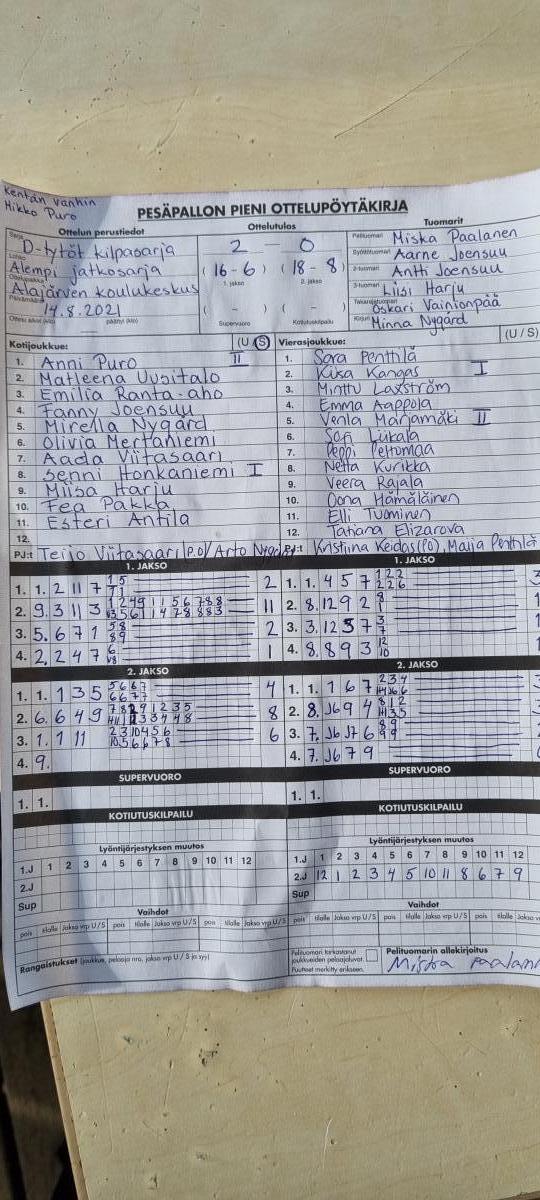 Kentän vanhin
Mikko Puro
PESÄPALLON PIENI OTTELUPÖYTÄKIRJA
Ottelun perustiedot
Ottelutulos
Tuomarit
Sarja D-tytöt kilpasarja
Lohko Alempi jatkosarja
Ottelupaikka Alajärven koulukeskus
Päivämäärä 14.8.2021
Ottelu alkoi (klo) päättyi (klo)
2 — 0
( 16 - 6 ) ( 18 - 8 )
1. jakso 2. jakso
( - ) ( - )
Supervuoro Kotiutuskilpailu
Pelituomari Miska Paalanen
Syöttötuomari Aarne Joensuu
2-tuomari Antti Joensuu
3-tuomari Liisi Harju
Takarajatuomari Oskari Vainionpää
Kirjuri Minna Nygård
Kotijoukkue: (U / S)
1. Anni Puro II
2. Matleena Uusitalo
3. Emilia Ranta-aho
4. Fanny Joensuu
5. Mirella Nygård
6. Olivia Mertaniemi
7. Aada Viitasaari
8. Senni Honkaniemi I
9. Miisa Harju
10. Fea Pakka
11. Esteri Antila
12.
PJ:t Teijo Viitasaari (PO) / Arto Nygård
Vierasjoukkue: (U / S)
1. Sara Penttilä
2. Kiisa Kangas I
3. Minttu Laxström
4. Emma Aappola
5. Venla Marjamäki II
6. Sofi Liikala
7. Peppi Peltomaa
8. Netta Kurikka
9. Veera Rajala
10. Oona Hämäläinen
11. Elli Tuominen
12. Tatiana Elizarova
PJ:t Kristiina Keidas (PO), Maija Penttilä
1. JAKSO
1. 1. 2 11 7 2
2. 9. 3 11 3 11
3. 5. 6 7 1 58 89 2
4. 2. 2 4 7 1
1. JAKSO
1. 1. 4 5 7 122 226 3
2. 8. 12 9 2 1
3. 3. 12 5 7 1
4. 8. 8 9 3 12 10 1
2. JAKSO
1. 1. 1 3 5 5667 6677 4
2. 6. 6 4 9 8
3. 1. 1 11 6
4. 9.
2. JAKSO
1. 1. 1 6 7 234
2. 8. J6 9 4
3. 7. J6 J7 6
4. 7. J6 7 9
SUPERVUORO
1. 1.
SUPERVUORO
1. 1.
KOTIUTUSKILPAILU
KOTIUTUSKILPAILU
Lyöntijärjestyksen muutos
1.J 1 2 3 4 5 6 7 8 9 10 11 12
2.J
Sup
Lyöntijärjestyksen muutos
1.J 1 2 3 4 5 6 7 8 9 10 11 12
2.J 12 1 2 3 4 5 10 11 8 6 7 9
Sup
Vaihdot
pois tilalle Jakso vrp U / S pois tilalle Jakso vrp U / S pois tilalle Jakso vrp U / S
Vaihdot
pois tilalle Jakso vrp U / S pois tilalle Jakso vrp U / S pois tilalle Jakso
Rangaistukset (joukkue, pelaaja nro, jakso vrp U / S ja syy)
Pelituomari tarkastanut
joukkueiden pelaajaluvat.
Puutteet merkitty erikseen.
Pelituomarin allekirjoitus
Miska Paalanen